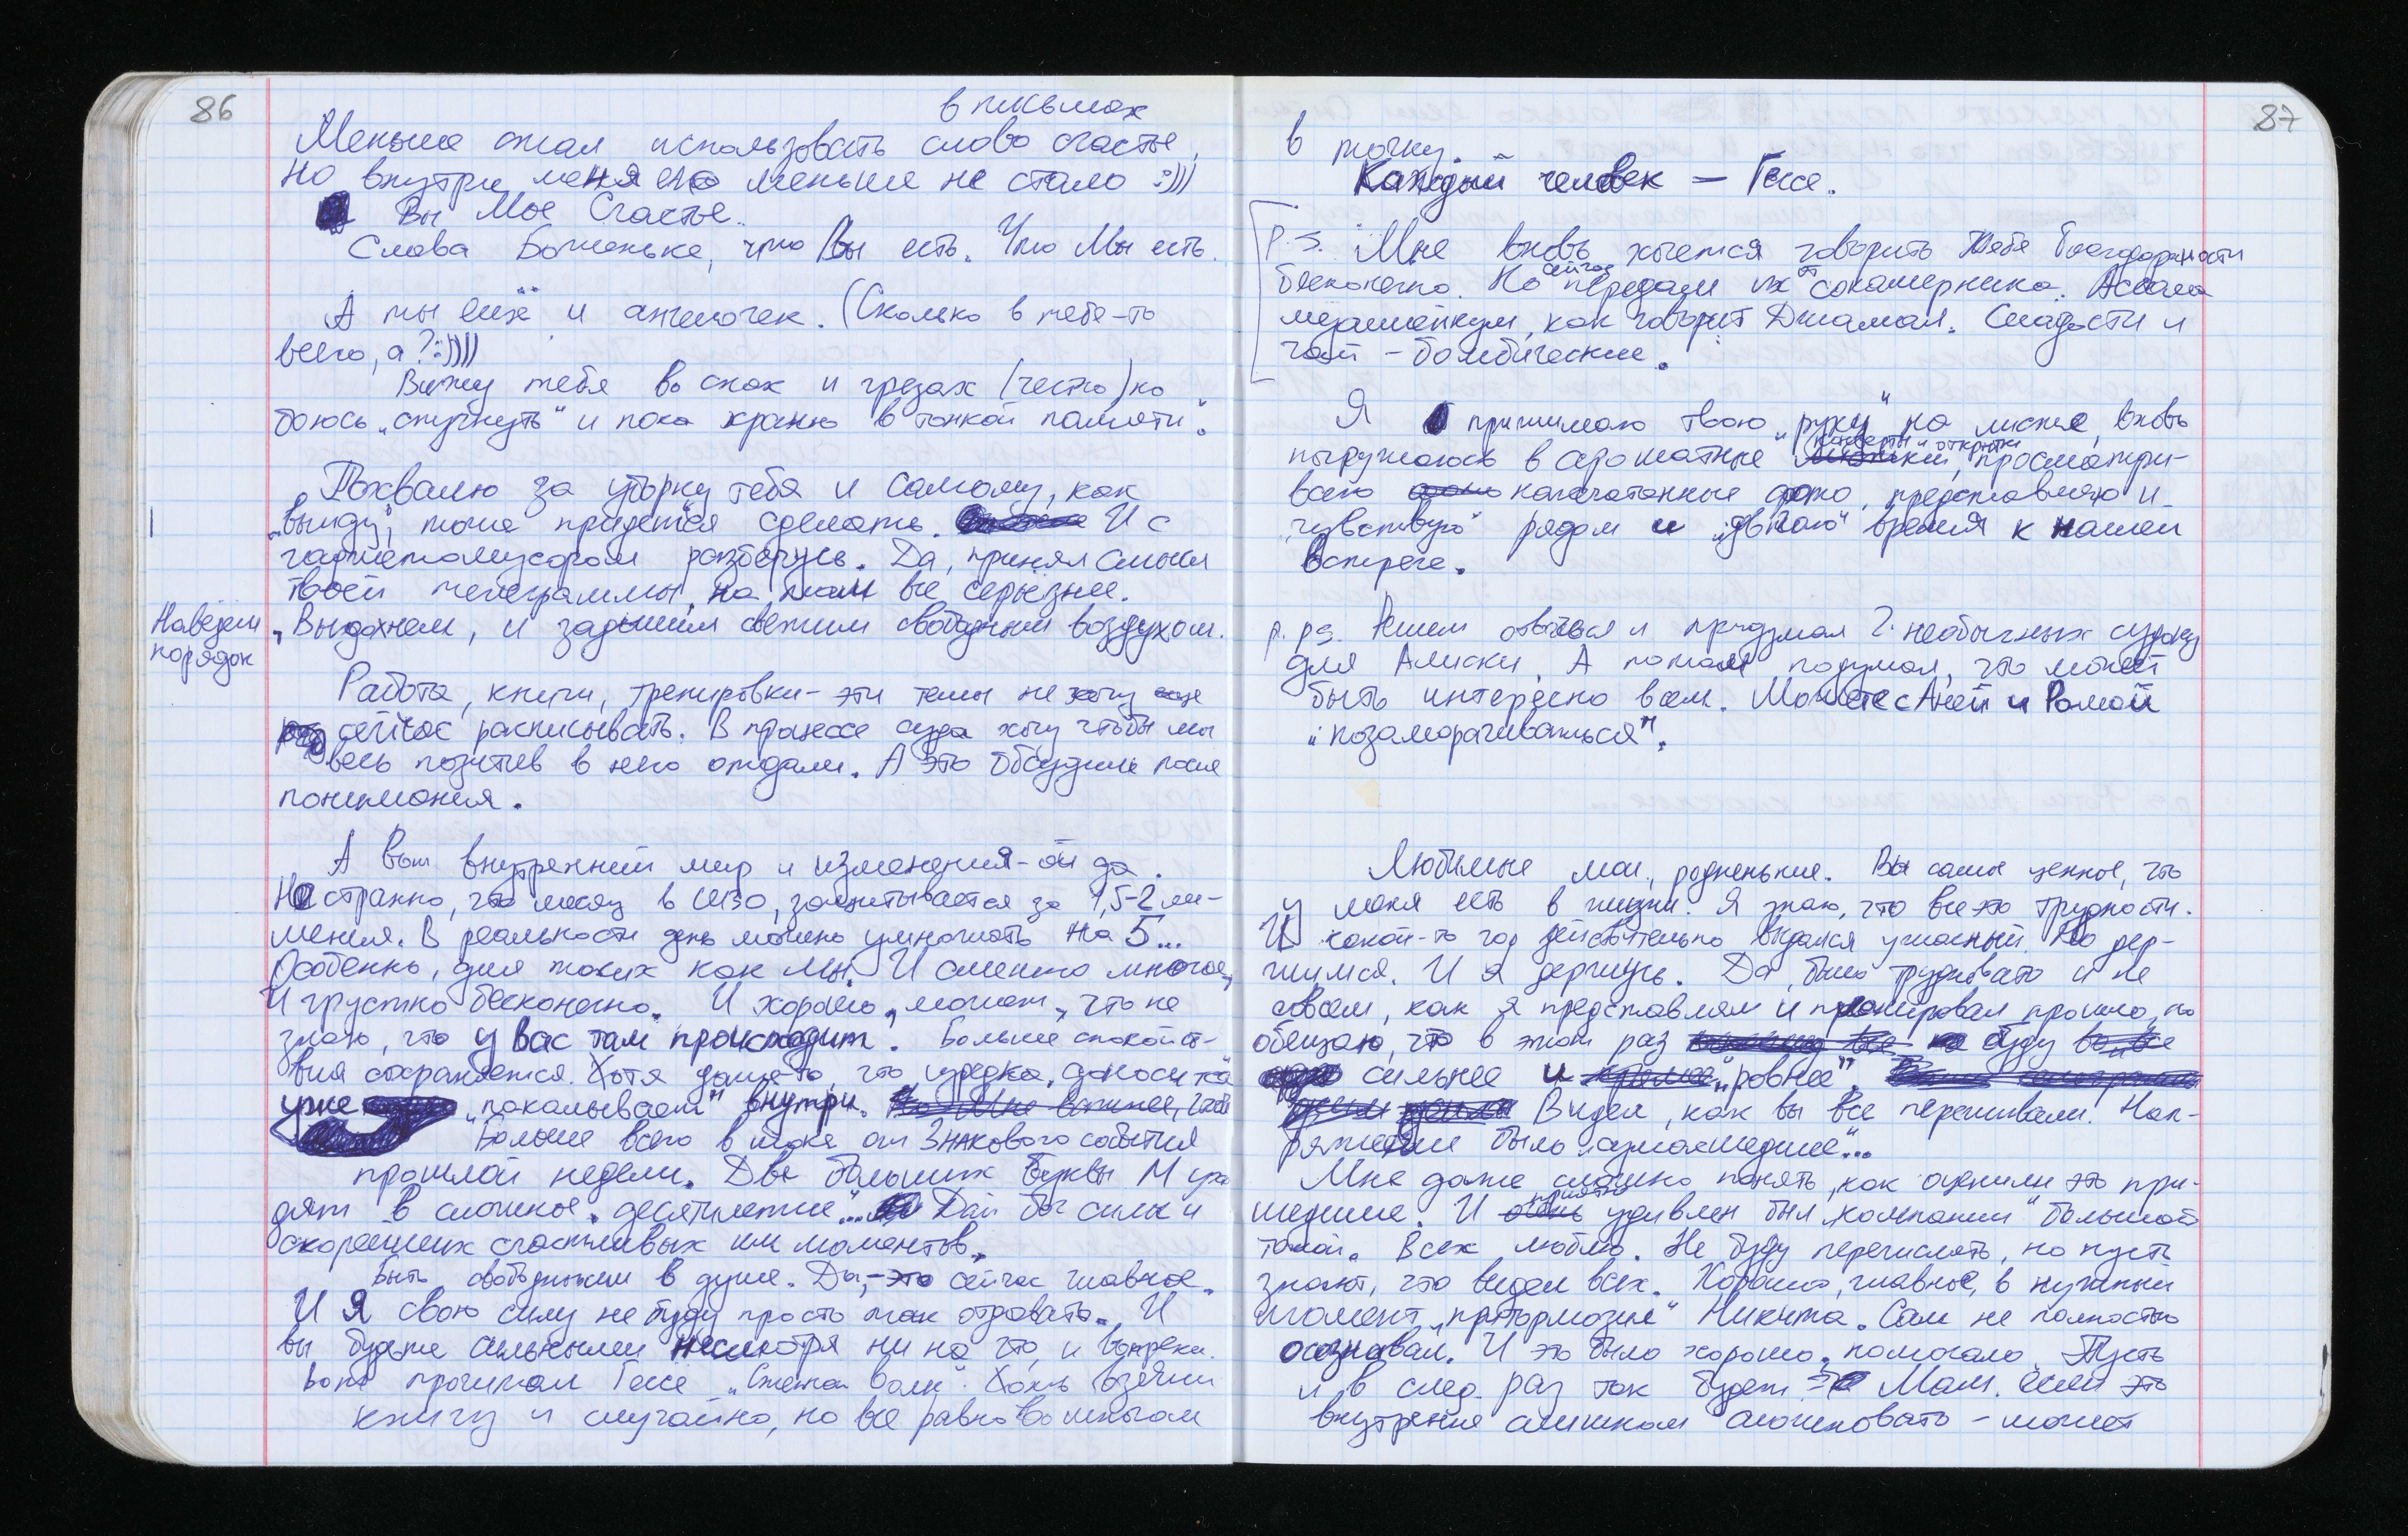 86
в письмах
Меньше стал использовать слово счастье,
но внутри меня его меньше не стало :)))
Вы Мое Счастье.
Слава Боженьке, что Вы есть. Что Мы есть.
А ты ещё и ангелочек. (Сколько в тебе-то
всего, а?:))))
Вижу тебя во снах и грезах (честно) но
боюсь „спугнуть“ и пока храню в тонкой памяти“.
Похвалю за уборку тебя и самому, как
„выйду“, тоже придется сделать. И с
разберусь. Да, принял смысл
твоей телеграммы, но там все серьезнее.
Наведем порядок
Выдохнем, и задышим свежим свободным воздухом.
Работа, книги, тренировки - эти темы не хочу еще
сейчас расписывать. В процессе суда хочу чтобы мы
весь позитив в него отдали. А это обсудим после
понимания.
А вот внутренний мир и изменения - ой да.
Но странно, что месяц в СИЗО, засчитывается за 1,5-2 ме-
месяца. В реальности день можно умножать на 5...
Особенно, для таких как мы. И смешно многое,
и грустно бесконечно. И хорошо, может, что не
знаю, что у вас там происходит. Больше спокойст-
вия сохраняется. Хотя даже то, что изредка, доносится
уже „покалывает“ внутри.
Больше всего в шоке от Знакового события
прошлой недели. Две больших буквы М
в сложное „десятилетие“... Дай бог силы и
скорейших счастливых им моментов.
Быть свободным в душе. Да, - это сейчас главное.
И Я свою силу не буду просто так отдавать. И
вы будьте сильными несмотря ни на что, и вопреки.
Вот прочитал Гессе „Степной волк“. Хоть взял
книгу и случайно, но все равно во многом
87
в точку.
Каждый человек – Гессе.
P.S. Мне вновь хочется говорить тебе благодарности
бесконечно. Но сейчас передам их от сокамерника. Ассаламу
алейкум, как говорит Джамал. Сладости и
чай – бомбические.
Я принимаю твою „руку“ на листке, вновь
погружаюсь в ароматные „конверты и открытки“, просматри-
ваю напечатанные фото, представляю и
„чувствую“ рядом и „двигаю“ время к нашей
встрече.
p.ps. Решил отвлечься и придумал 2 необычных судоку
для Алиски. А потом подумал, что может
быть интересно всем. Можете с Аней и Ромой
„позаморачиваться“.
Любимые мои, родненькие. Вы самое ценное, что
у меня есть в жизни. Я знаю, что все это трудности.
И какой-то год действительно выдался ужасный. Но дер-
жимся. И я держусь. Да, было трудновато и не
совсем, как я представлял и планировал прошло, но
обещаю, что в этот раз буду
сильнее и „ровнее“.
Видел, как вы все переживали. Нап-
ряжение было „сумасшедшее“...
Мне даже сложно понять, как оценили это при-
шедшие. И приятно удивлен был „компании“ большой
такой. Всех люблю. Не буду перечислять, но пусть
знают, что видел всех. Хорошо, главное, в нужный
момент „притормозил“ Никита. Сам не полностью
осознавал. И это было хорошо, помогало. Пусть
и в след. раз так будет. Мам, если это
внутренне слишком – может